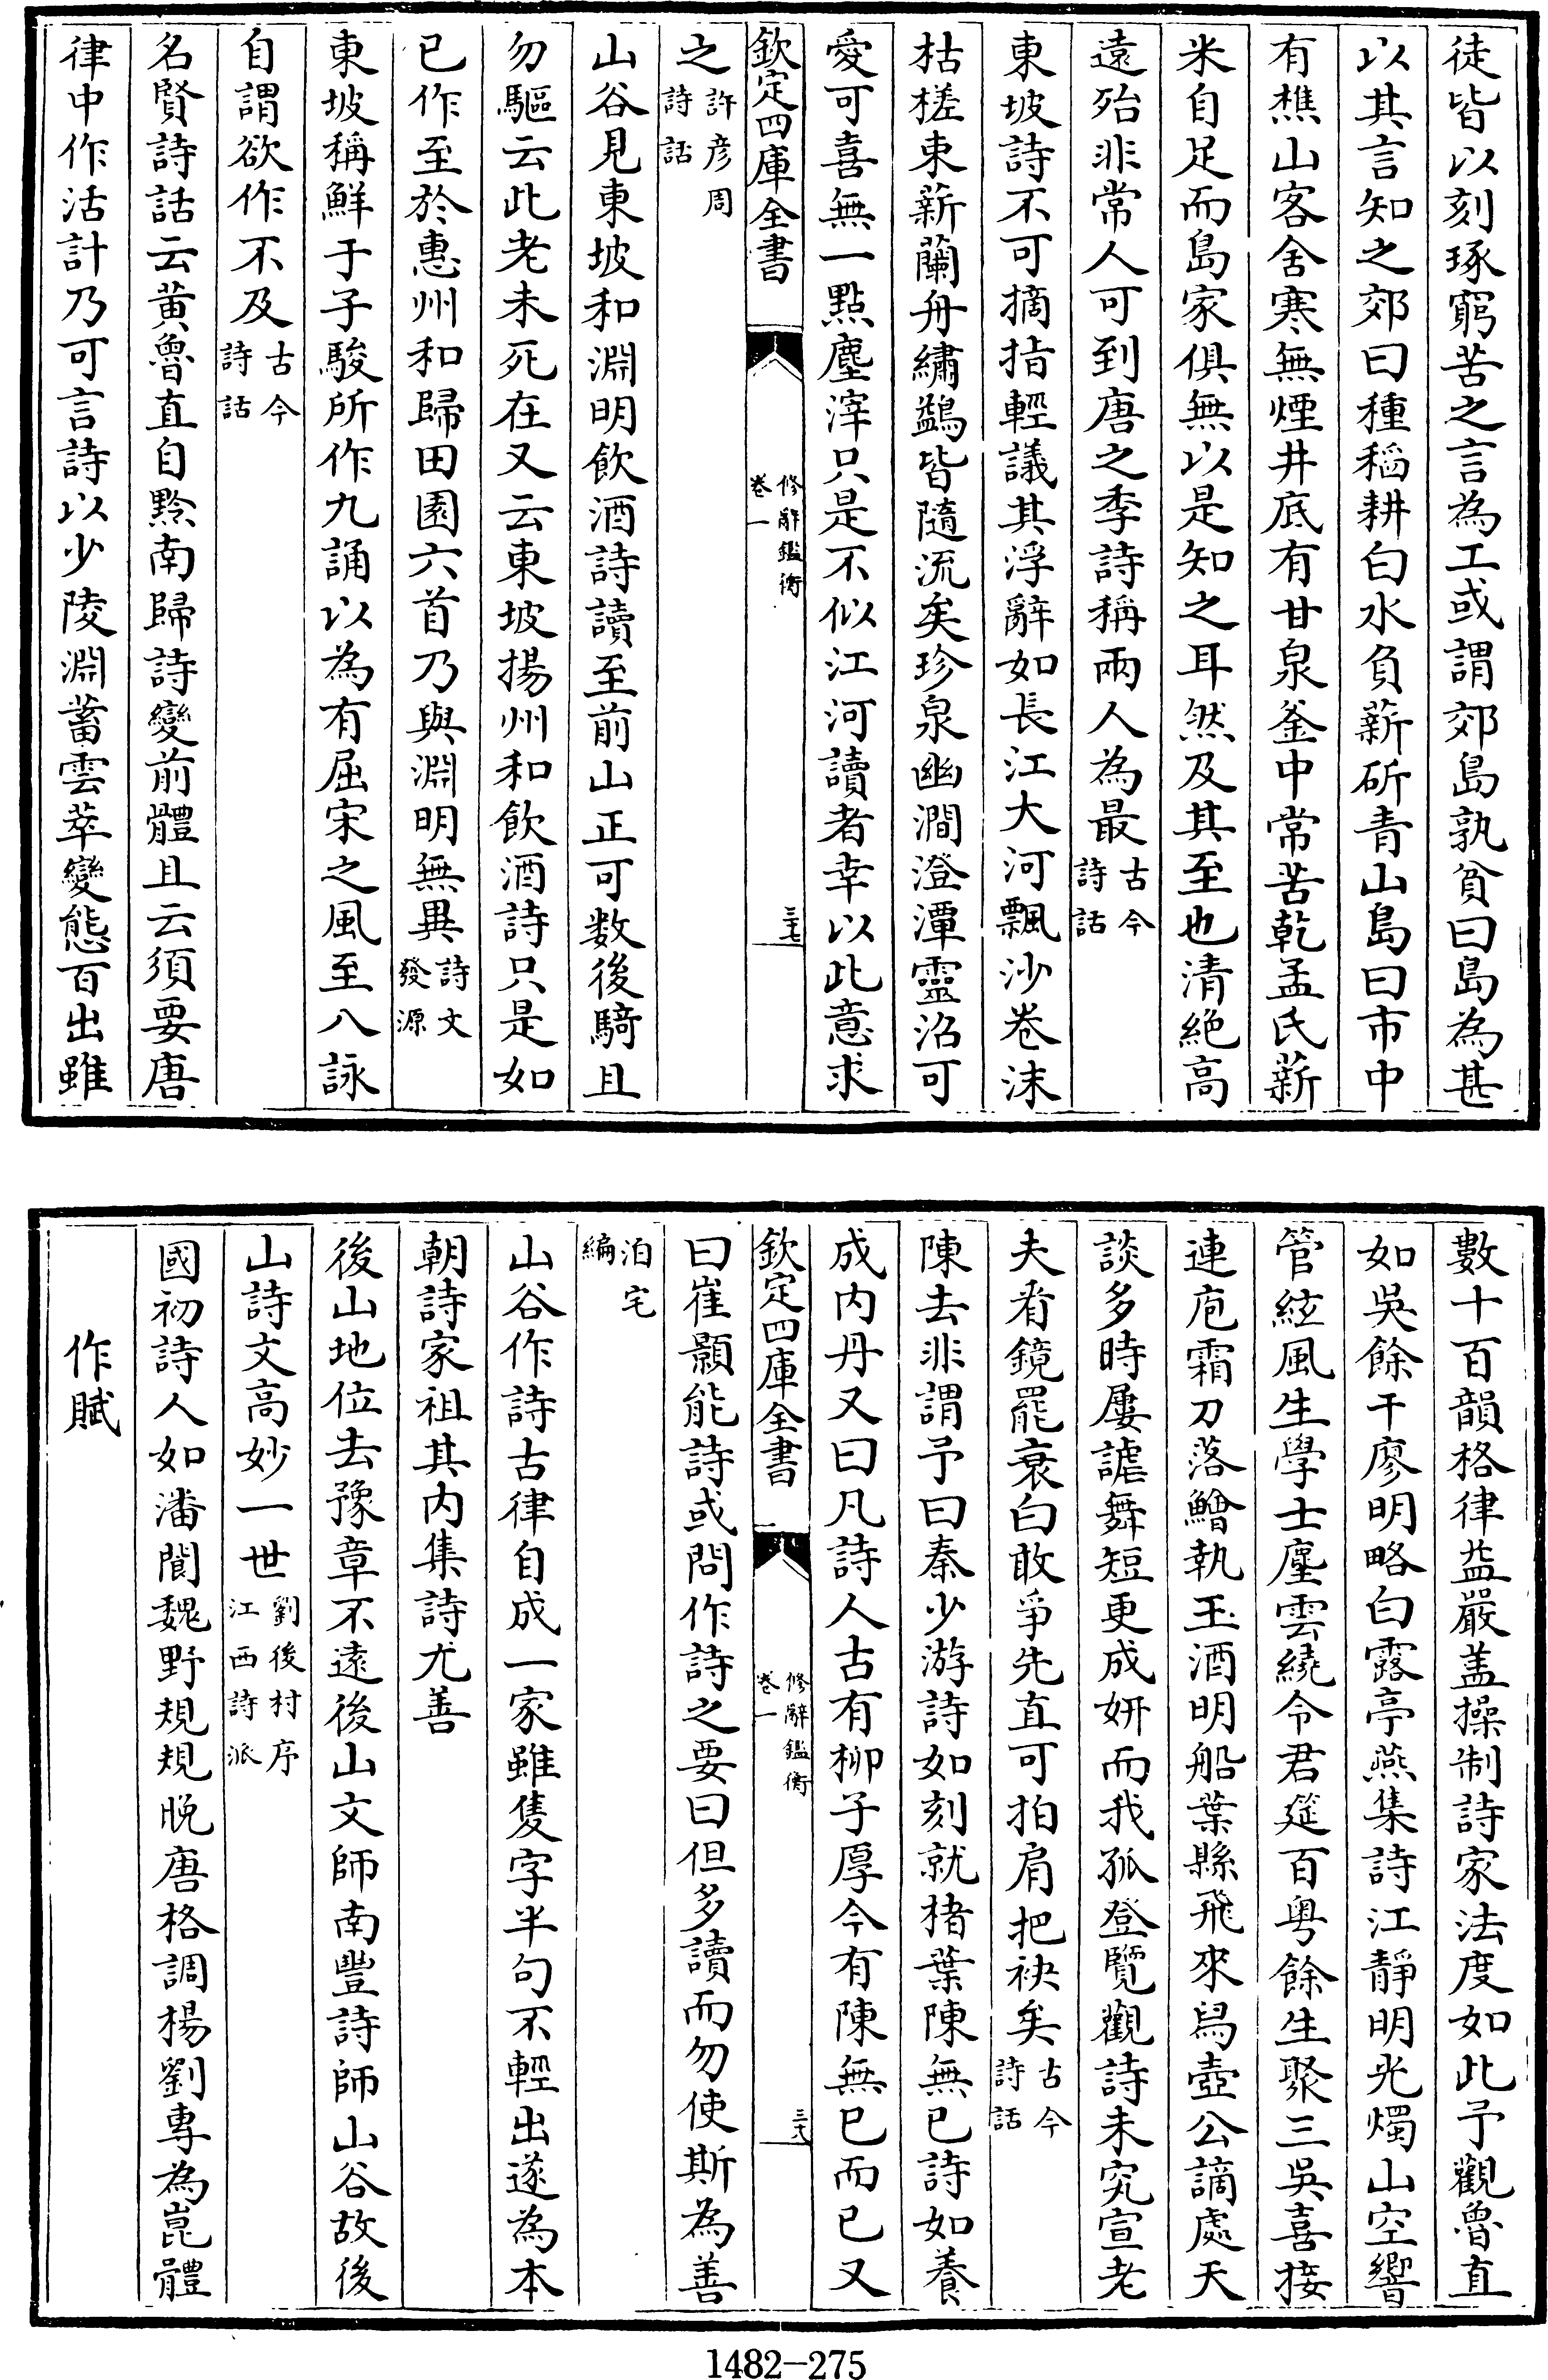 徒皆以刻琢窮苦之言為工或謂郊島孰貧曰島為甚
以其言知之郊曰種稻耕白水負薪斫青山島曰市中
有樵山客舍寒無煙井底有甘泉釜中常苦乾孟氏薪
米自足而島家俱無以是知之耳然及其至也清絶高
遠殆非常人可到唐之季詩稱兩人為最古今詩話
東坡詩不可摘指輕議其浮辭如長江大河飄沙卷沫
枯槎束薪蘭舟繡鷁皆隨流矣珍泉幽澗澄潭靈沼可
愛可喜無一點塵滓只是不似江河讀者幸以此意求
欽定四庫全書 修辭鑑衡 卷一 三七
之許彦周詩話
山谷見東坡和淵明飲酒詩讀至前山正可数後騎且
勿驅云此老未死在又云東坡揚州和飲酒詩只是如
已作至於惠州和歸田園六首乃與淵明無異詩文發源
東坡稱鮮于子駿所作九誦以為有屈宋之風至八詠
自謂欲作不及古今詩話
名賢詩話云黄魯直自黔南歸詩變前體且云須要唐
律中作活計乃可言詩以少陵淵蓄雲萃變態百出雖
數十百韻格律益嚴盖操制詩家法度如此予觀魯直
如吳餘干廖明略白露亭燕集詩江靜明光燭山空響
管絃風生學士麈雲繞令君筵百粤餘生聚三吳喜接
連庖霜刀落鱠執玉酒明船葉縣飛來舄壺公謫處天
談多時屢謔舞短更成妍而我孤登覽觀詩未究宣老
夫看鏡罷衰白敢爭先直可拍肩把袂矣古今詩話
陳去非謂予曰秦少游詩如刻就楮葉陳無已詩如養
成内丹又曰凡詩人古有柳子厚今有陳無已而已又
欽定四庫全書 修辭鑑衡 卷一 三八
曰崔顥能詩或問作詩之要曰但多讀而勿使斯為善
泊宅編
山谷作詩古律自成一家雖隻字半句不輕出遂為本
朝詩家祖其内集詩尤善
後山地位去豫章不遠後山文師南豐詩師山谷故後
山詩文高妙一世劉後村序江西詩派
國初詩人如潘閬魏野規規晚唐格調楊劉專為崑體
作賦
1482-275